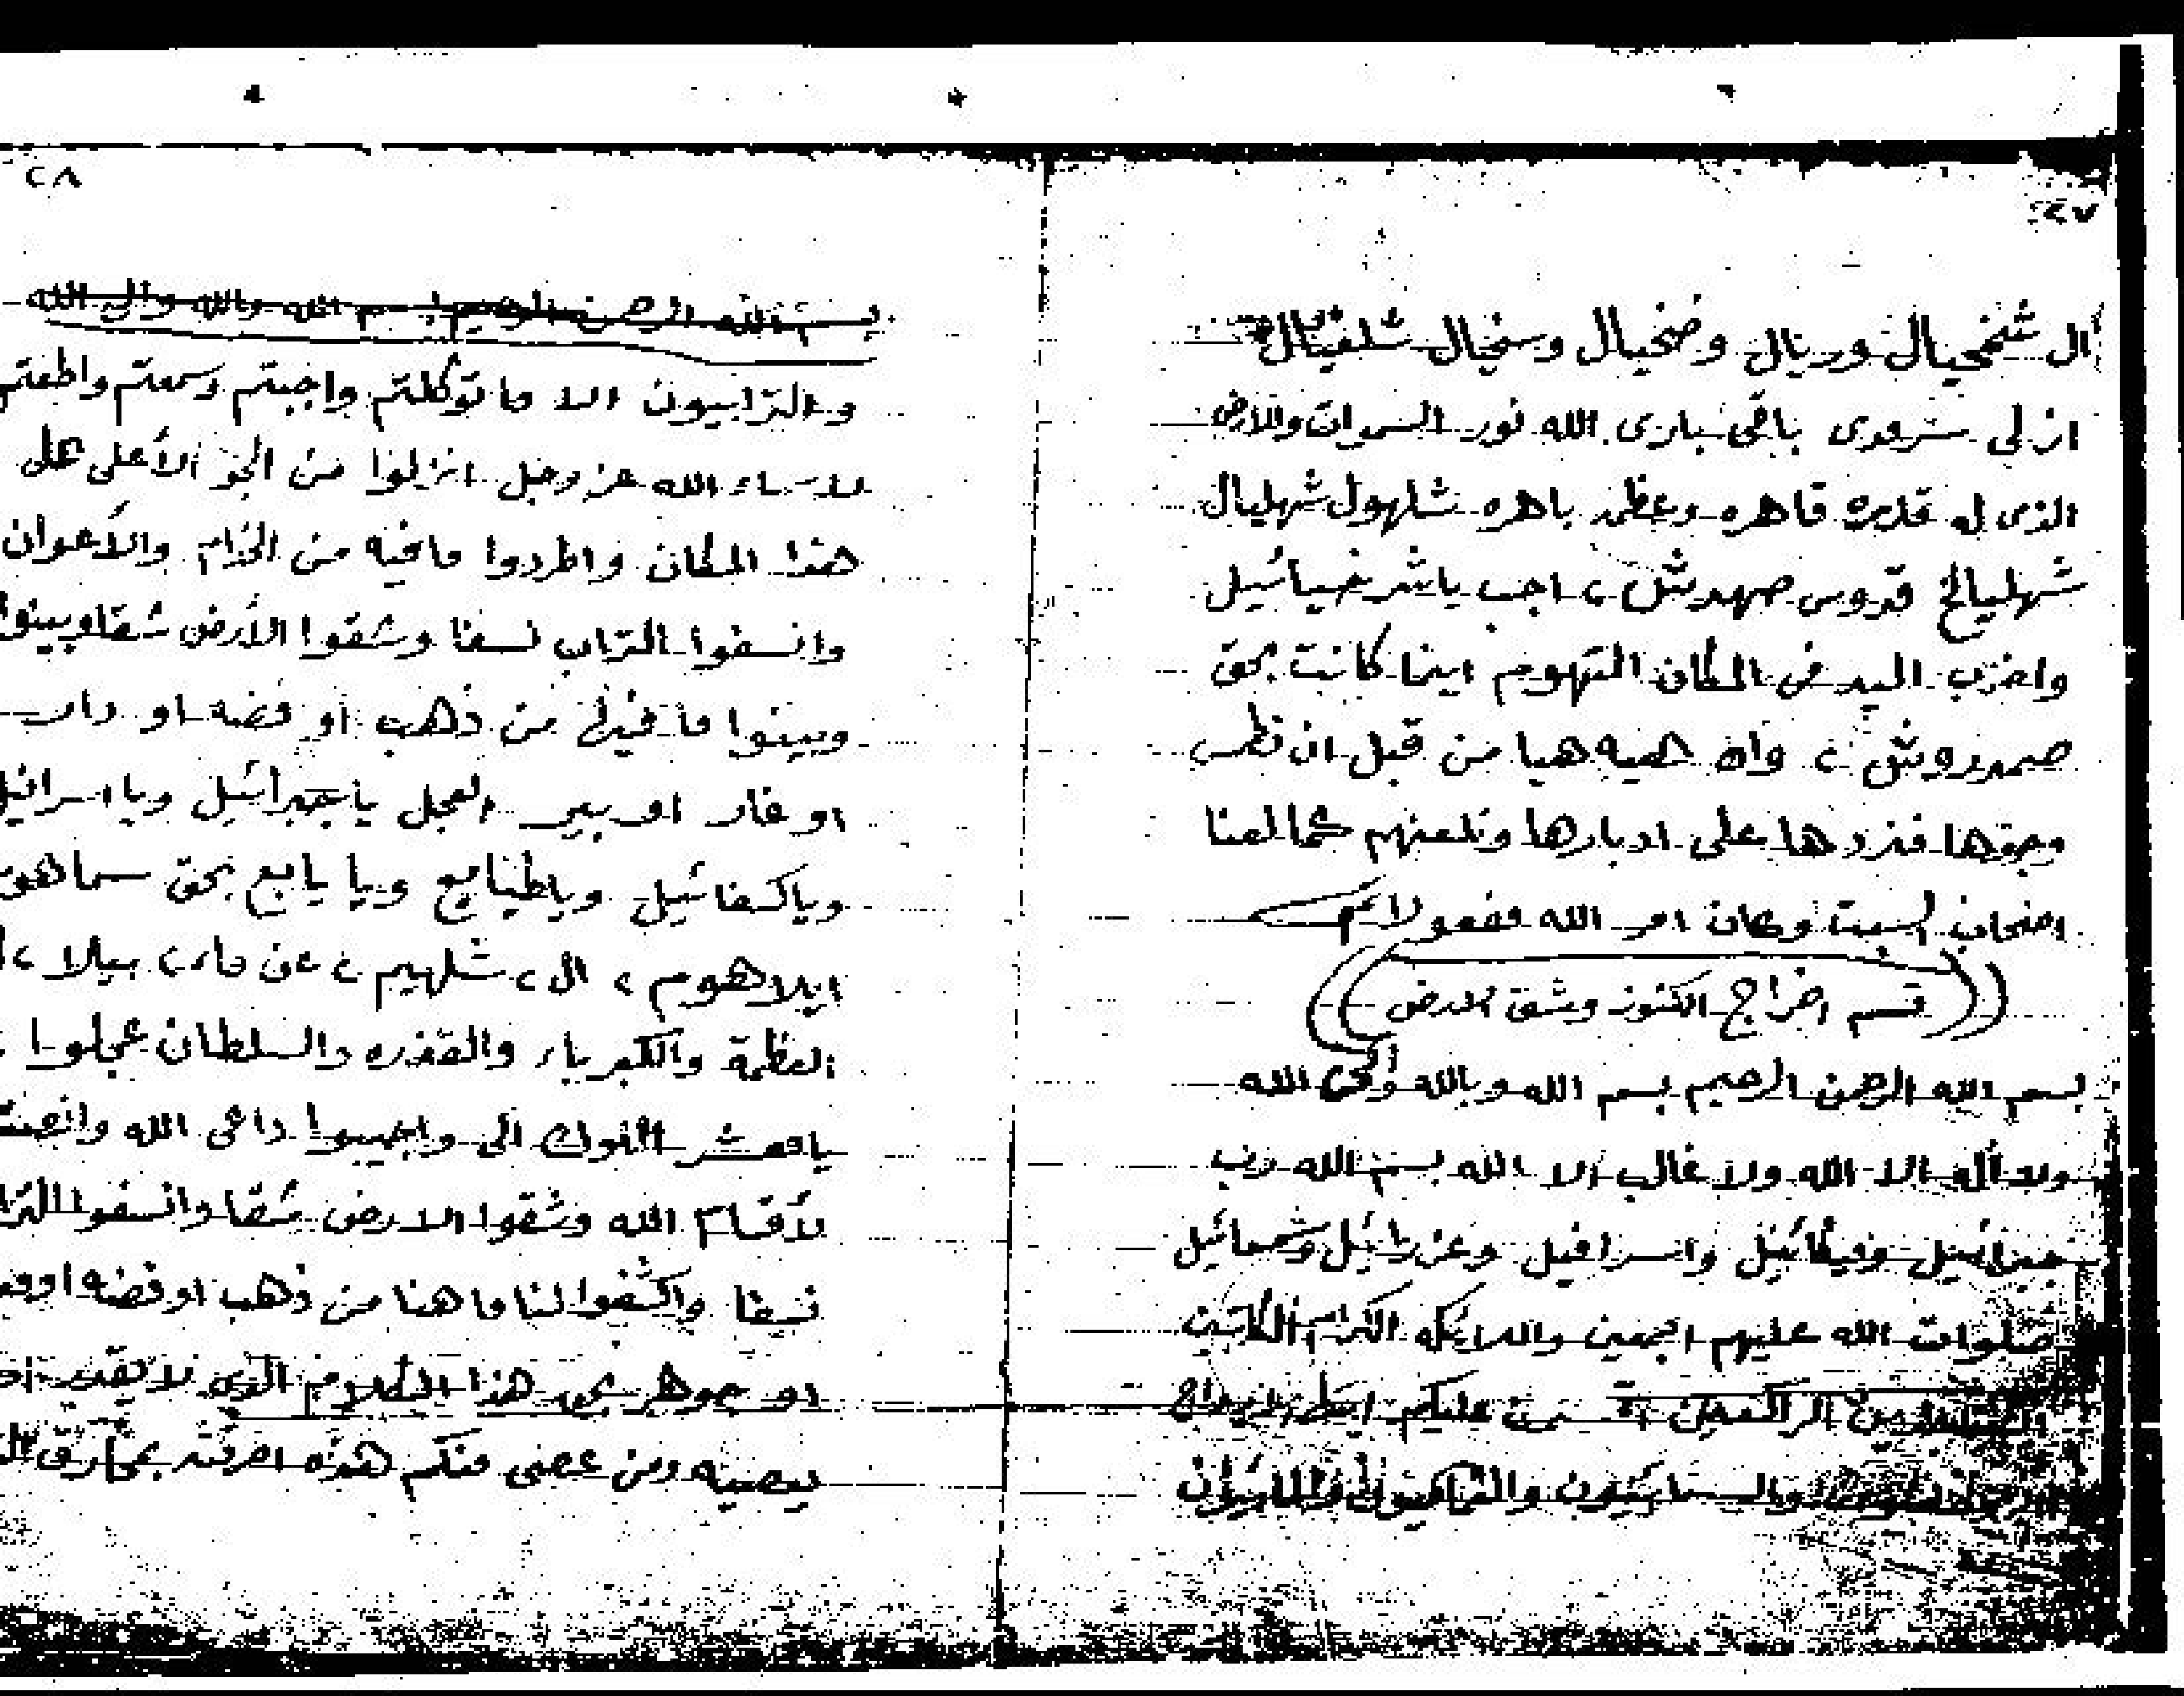 ٢٧
ال شمخيال وريال وضخيال وسنخيال
ازلى سرمدى باقى بارى الله نور السموات والارض
الذى له قدره قاهره وعظمه باهره شلهول شهليال
شهليالخ قدوس صهدش ، اجب ياشرخيائيل
واضرب اليد فى المكان التهوم اينما كانت بحق
صمدروش ، واه هيا من قبل ان نطمس
وجوها فنردها على ادبارها ونلعنهم كما لعنا
اصحاب السبت وكان امر الله مفعولا
(( قسم اخراج الكنوز وشق الارض ))
بسم الله الرحمن الرحيم بسم الله وبالله والى الله
ولا اله الا الله ولا غالب الا الله بسم الله رب
جبرائيل وميكائيل واسرافيل وعزرائيل وشمعائيل
صلوات الله عليهم اجمعين والملايكه الكرام الكاتبين
الراكعين اقسمت عليكم
والسحابيون
٢٨
بسم الله الرحمن الرحيم بسم الله وبالله والى الله
والترابيون الا ما توكلتم واجبتم وسمعتم واطعتم
لاسماء الله عز وجل انزلوا من الجو الأعلى على
هذا المكان واطردوا مافيه من الخدام والأعوان
وانسفوا التراب نسفا وشقوا الأرض شقا وبينوا
وبينوا ما فيها من ذهب أو فضه او
او غار او بير العجل ياجبرائيل ويا اسرافيل
وياكسفائيل وياطيايع ويا يايع بحق سماهو
ايلاهوم ، ال ، شلهيم ، عن ، بيلا ،
العظمة والكبرياء والقدره والسلطان عجلوا
يامعشر الملوك الى واجيبوا داعى الله
لأقسام الله وشقوا الارض شقا وانسفوا
نسفا واكشفوا لنا ما هنا من ذهب او فضه
او جوهر بحق هذا الكلام الذى لا يقدر
يعصيه ومن عصى منكم هذه احرقته